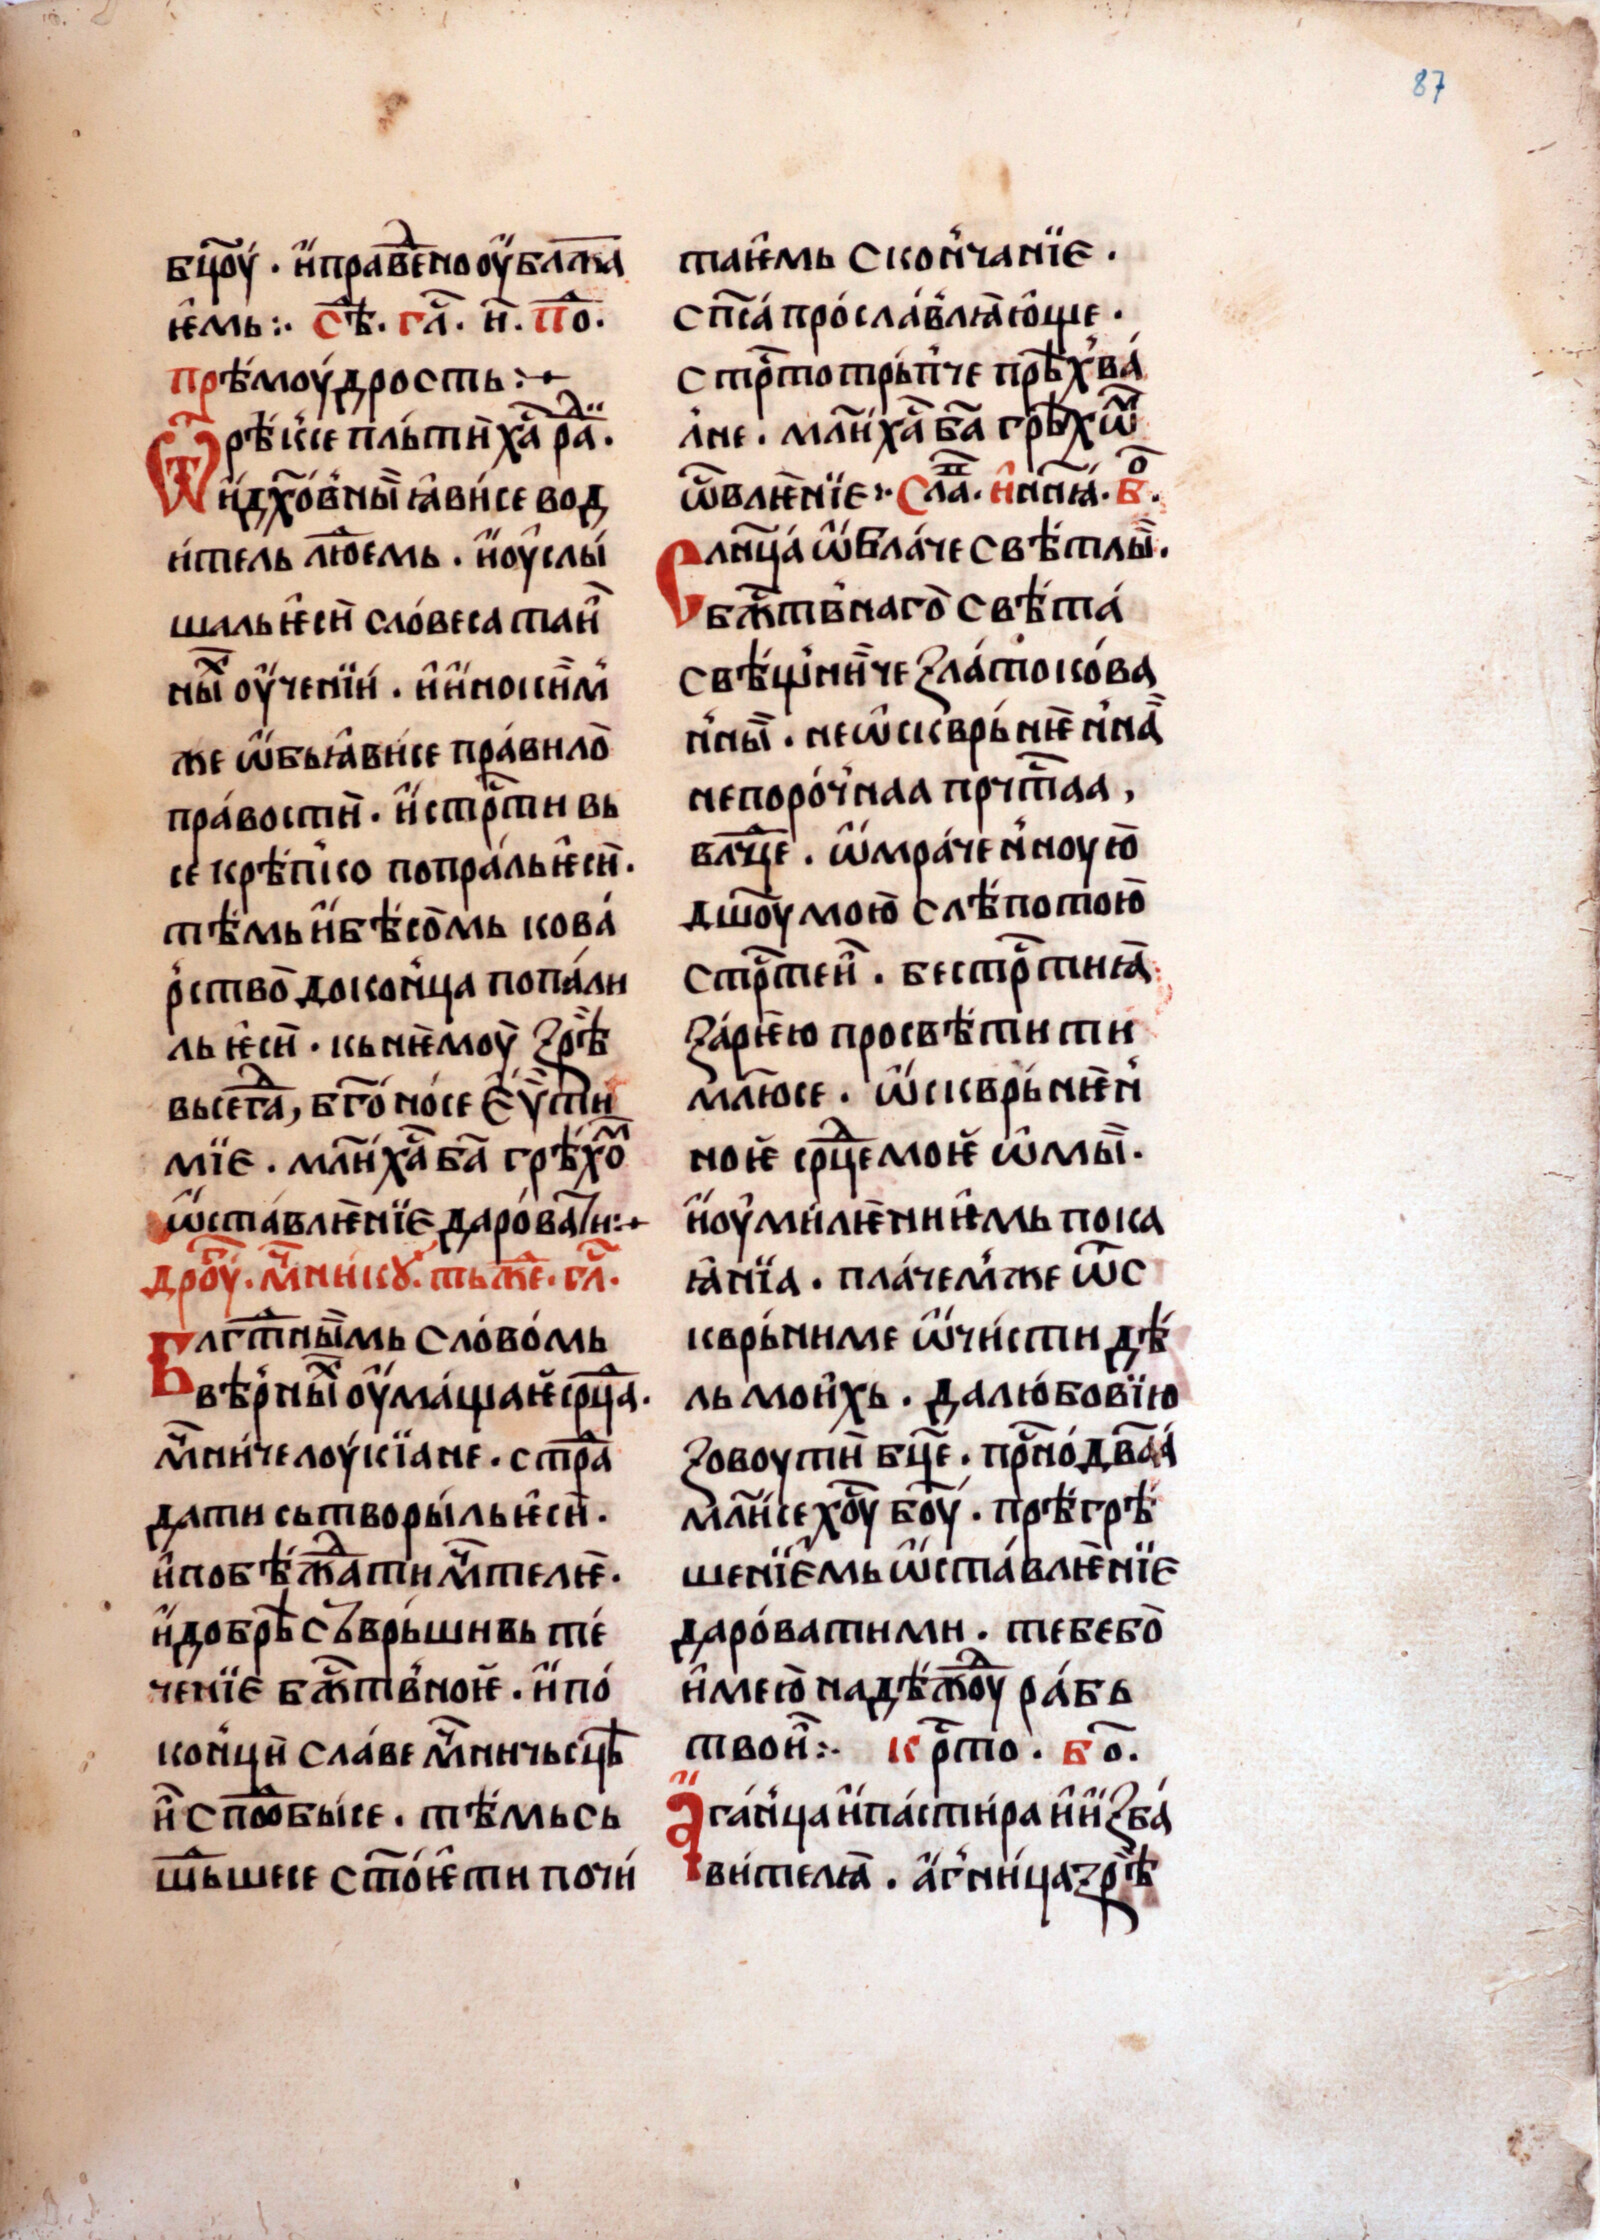 87
бц҃оу́ . и҆праве́дно оу҆блаж҃а
ѥ҆мь :. Сѣ҃. гл҃. и҃. По҃.
Прѣ́моу́дрость :~
Ѿрѣ́к̾се пль́ти х҃а ра́ди .
и҆дх҃о́в̾ны ꙗ҆ви́се вод
и́тель лю҃емь . и҆оу҆слы́
шаль ѥ҆си сло́веса таи҆
ны́х оу҆че́нїи . и҆и҆нокы́м
же ѡ҆бь ꙗ҆ви́се пра́вило
пра́вости . и҆стрⷭ҇ти вь
се крѣ́п̾ко попра́ль ѥ҆си.
тѣ́мь и҆бѣ́сомь кова́
р̾ство докон̾ца попа́ли
ль ѥ҆си . кь нѥмоу́ зрѣ
высегда, бг҃о́но́се Е҆ѵ́ѳи
мїе . мл҃и х҃а ба҃ грѣ́хо́м
ѡ҆ста́влѥнїе даро́вати :~
дроу҃гы́. мч҃ни́коу. тьже. гл҃.
Блгⷭ҇тны́мь сло́во́мь
вѣ́р̾ны́х оу҆ма́щаѥ ср҃ца .
мч҃ни́че лоу́кїане . стра
дати сьтвори́ль ѥ҆си .
и҆побѣжда́ти мч҃телѥ .
и҆добрѣ съврь́шивь те́
че́нїе бжⷭ҇тв̾ноѥ . и҆по́
кон̾ци сла́ве мч҃ничьсцѣ
и҆сподо́бысе . тѣ́мь сь
шь́шесе сто́ѥ҆ти почи́
таѥ҆мь скон̾чанїе .
сп҃са́ про́сла́влꙗю҆ще .
стрⷭ҇тотрь́п̾че прѣх̾ва́
л̾не . мл҃и х҃а ба҃ грѣ́хѡм
ѿвлѥ́нїе :· Сла҃. и҆нн҃ꙗ. Бо.
Слн҃ца́ ѡ҆́бла́че свѣ́тлы .
бжⷭ҇тв̾наго свѣ́та́
свѣ́щ̾ни́че зла́токо́ва
н̾ны . неѡ҆скврь́нѥн̾наа
непоро́ч̾наа прчⷭ҇таа ,
влⷣч҃це . ѡ҆мра́чен̾ноую
дш҃оу мою слѣ́потою
стрⷭ҇теи . бестрⷭ҇тнꙗ
за́рѥю просвѣ́ти ти
млю҃се . ѡ҆скврь́нѥн̾
ноѥ ср҃дце моѥ ѡ҆мы́ .
и҆оу҆ми́лѥниѥ҆мь пока
ꙗ҆нїа . пла́чем̾же ѿс
кврь́ниме ѡ҆чи́сти дѣ́
ль мои҆хь . да лю́бовїю
зовоу ти бц҃е . прⷭ҇но́дв҃аа́
мл҃и́се х҃оу́ бо҃у́ . прѣ́грѣ́
шенїе҆мь ѡ҆ста́влѥ́нїе
даро́вати ми . тебе бо
и҆мею наде́ждоу ра́бь
твои :· Крⷭ҇то . Бо.
Ага́н̾ца и҆па́сти́ра и҆и҆зба́
ви́телꙗ . а҆г̾ни́ца зрѣ